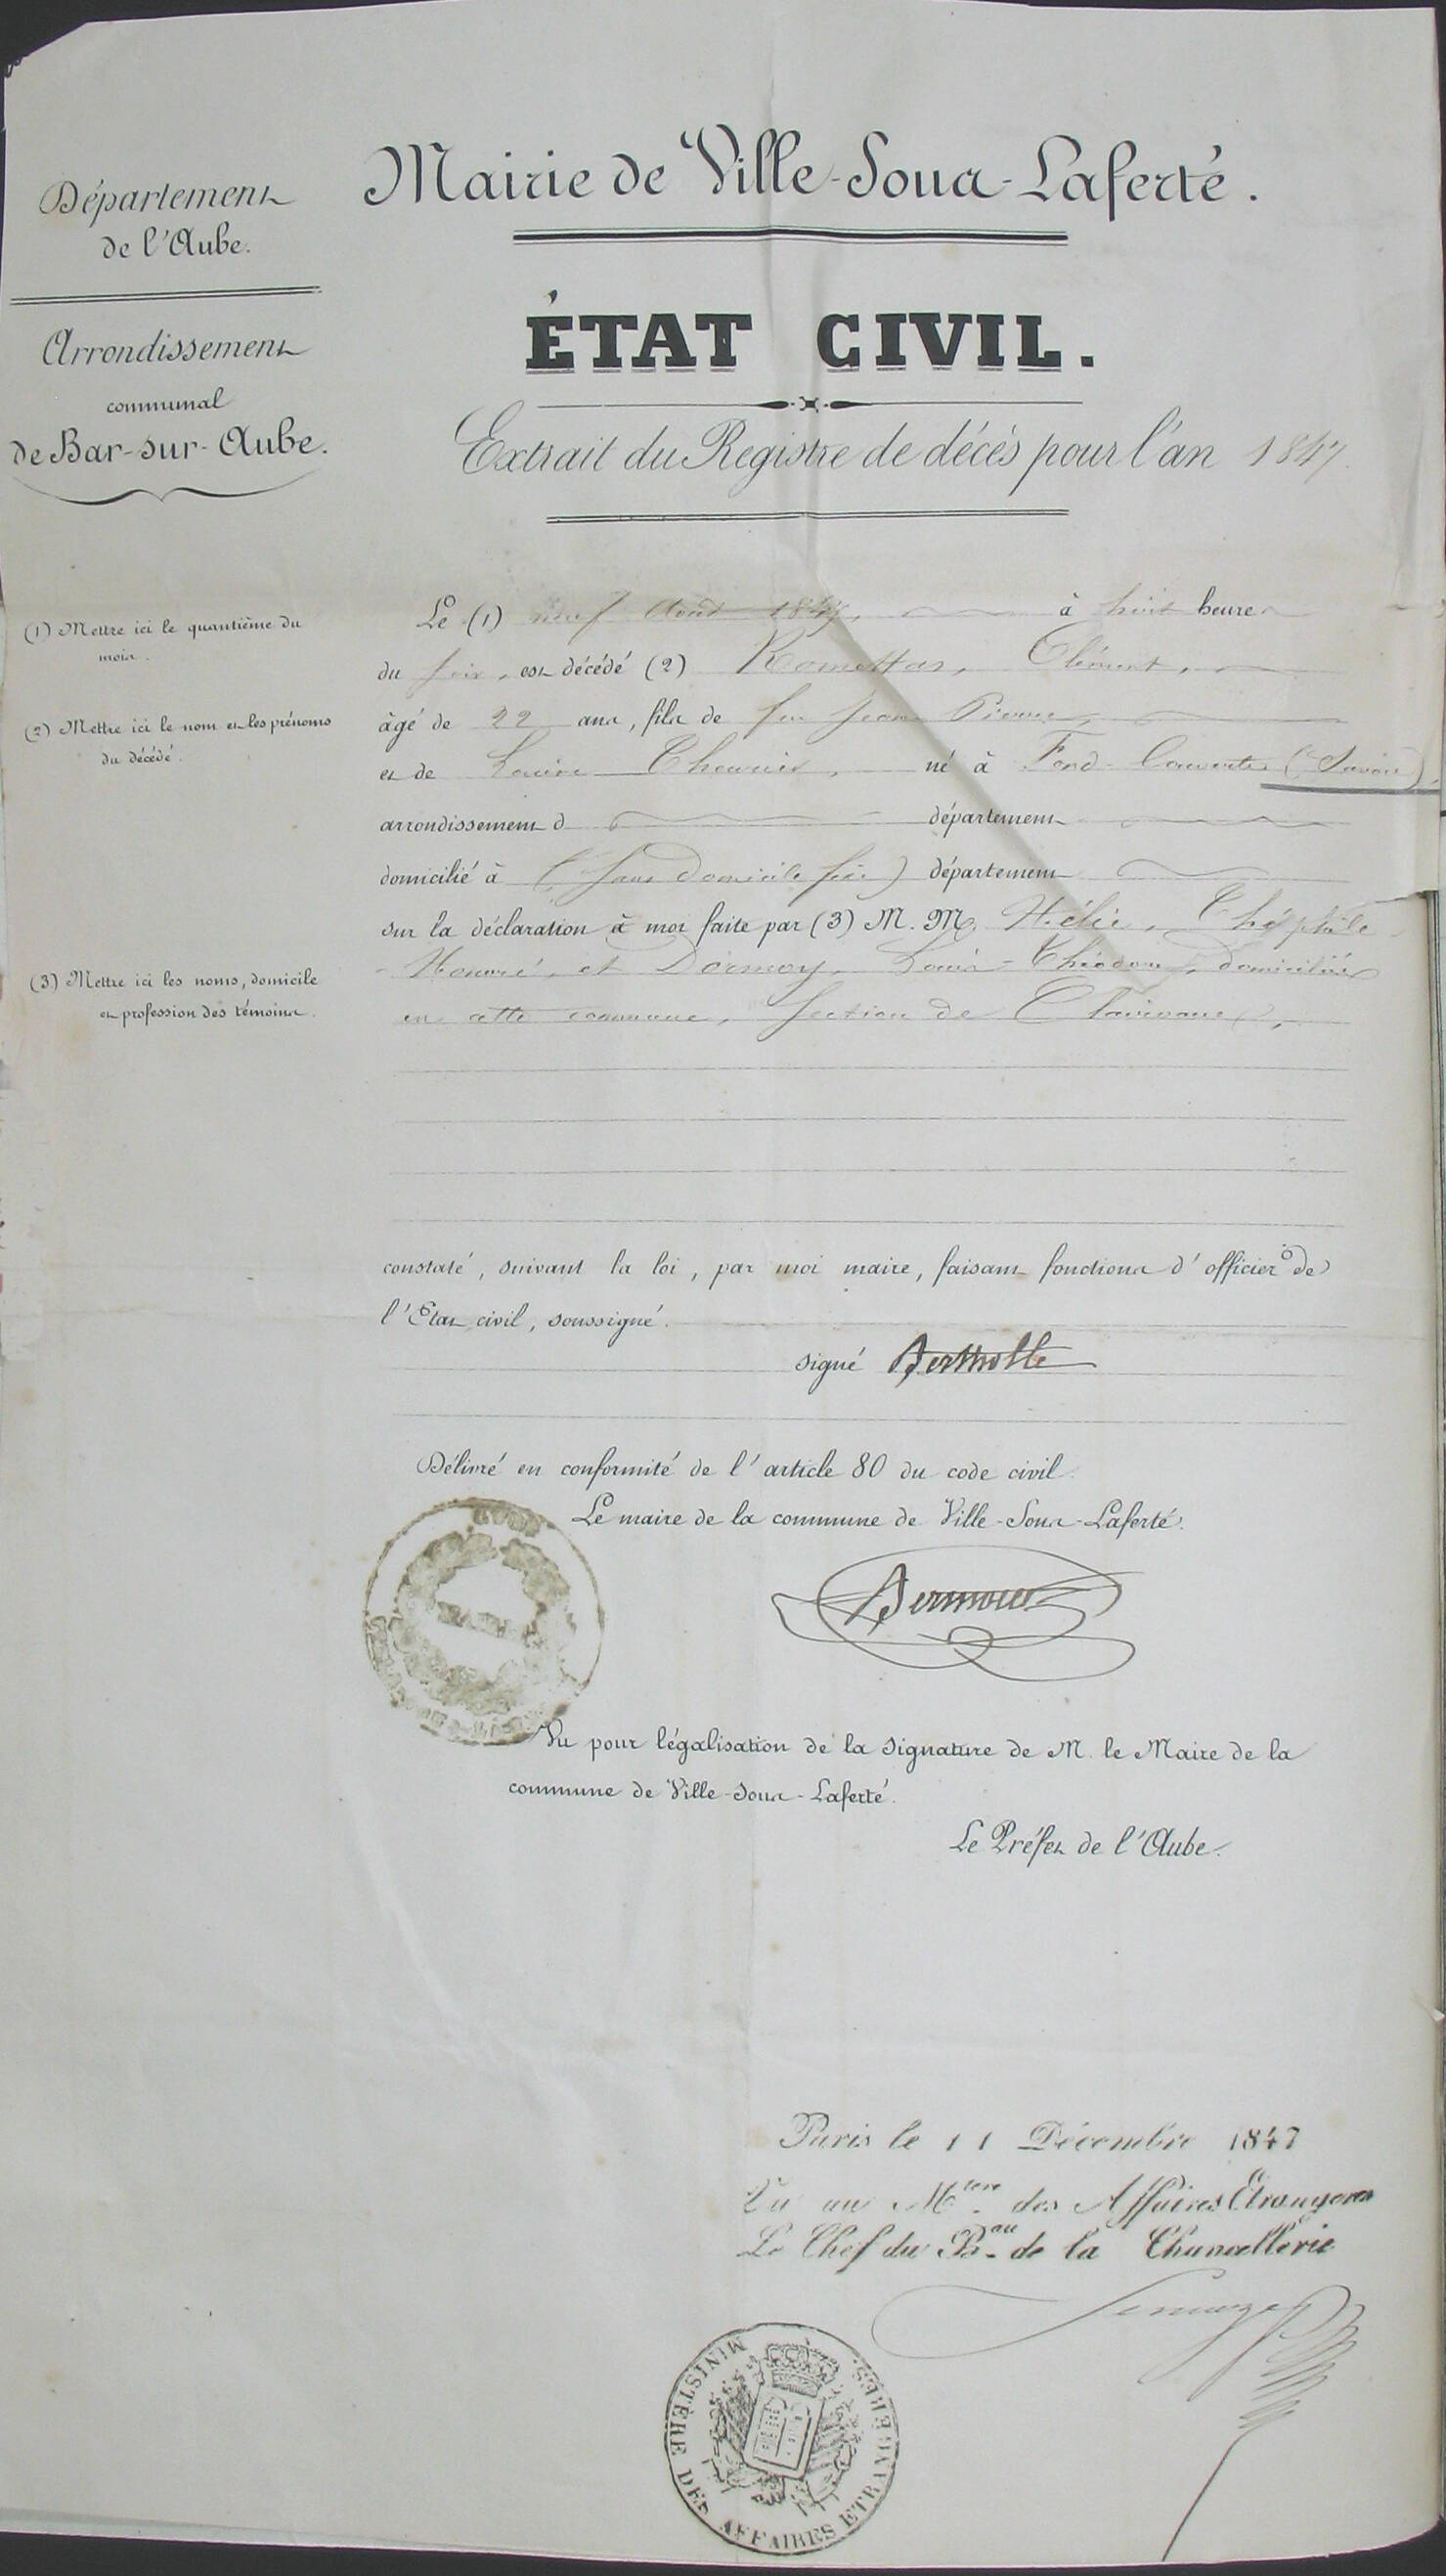 Département
de l'Aube.
Arrondissement
communal
de Bar-sur-Aube.
Mairie de Ville-Sous-Laferté.
ÉTAT CIVIL.
Extrait du Registre de décès pour l'an 1847.
(1) Mettre ici le quantième du
mois.
(2) Mettre ici le nom et les prénoms
du décédé.
(3) Mettre ici les noms, domicile
et profession des témoins.
Le (1) neuf Août 1847, à huit heures
du soir, est décédé (2) Clément,
âgé de 22 ans, fils de feu Jean Pierre,
et de Louise né à Fond (Savoie),
arrondissement d département
domicilié à (Sans domicile fixe) département
sur la déclaration à moi faite par (3) M. M. Hélie, Théophile
Honoré, et Dormoy, Louis-Théodore, domiciliés
en cette commune, Section de Clairvaux,
constaté, suivant la loi, par moi maire, faisant fonctions d'officier de
l'Etat civil, soussigné.
signé Bertholle
Délivré en conformité de l'article 80 du code civil.
Le maire de la commune de Ville-Sous-Laferté.
Vu pour légalisation de la signature de M. le Maire de la
commune de Ville-sous-Laferté.
Le Préfet de l'Aube.
Paris le 11 Décembre 1847
Vu au Mtère des Affaires Etrangères
Le Chef du Bau de la Chancellerie
MINISTÈRE DES AFFAIRES ETRANGERES.